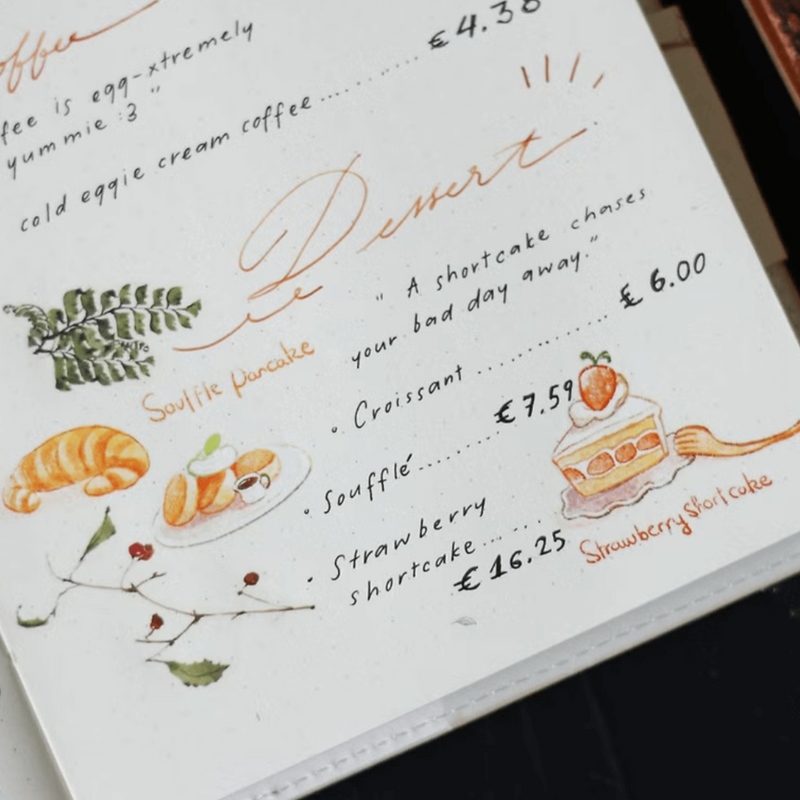 offee
fee is egg-xtremely
yummie :3 "
cold eggie cream coffee............ € 4.38
Dessert
" A shortcake chases
your bad day away."
Souffle pancake
• Croissant ............... € 6.00
• Soufflé........... € 7.59
• Strawberry
shortcake.......
€ 16.25
Strawberry Shortcake